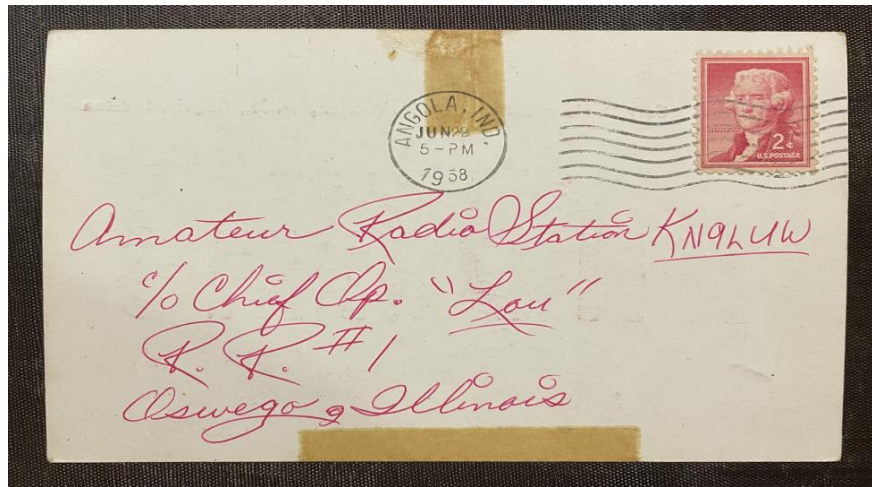 ANGOLA, IND.
JUN 22
5-PM
1958
JEFFERSON
2¢
U.S.POSTAGE
Amateur Radio Station KN9LUW
c/o Chief Op. "Lou"
R. R. #1
Oswego, Illinois